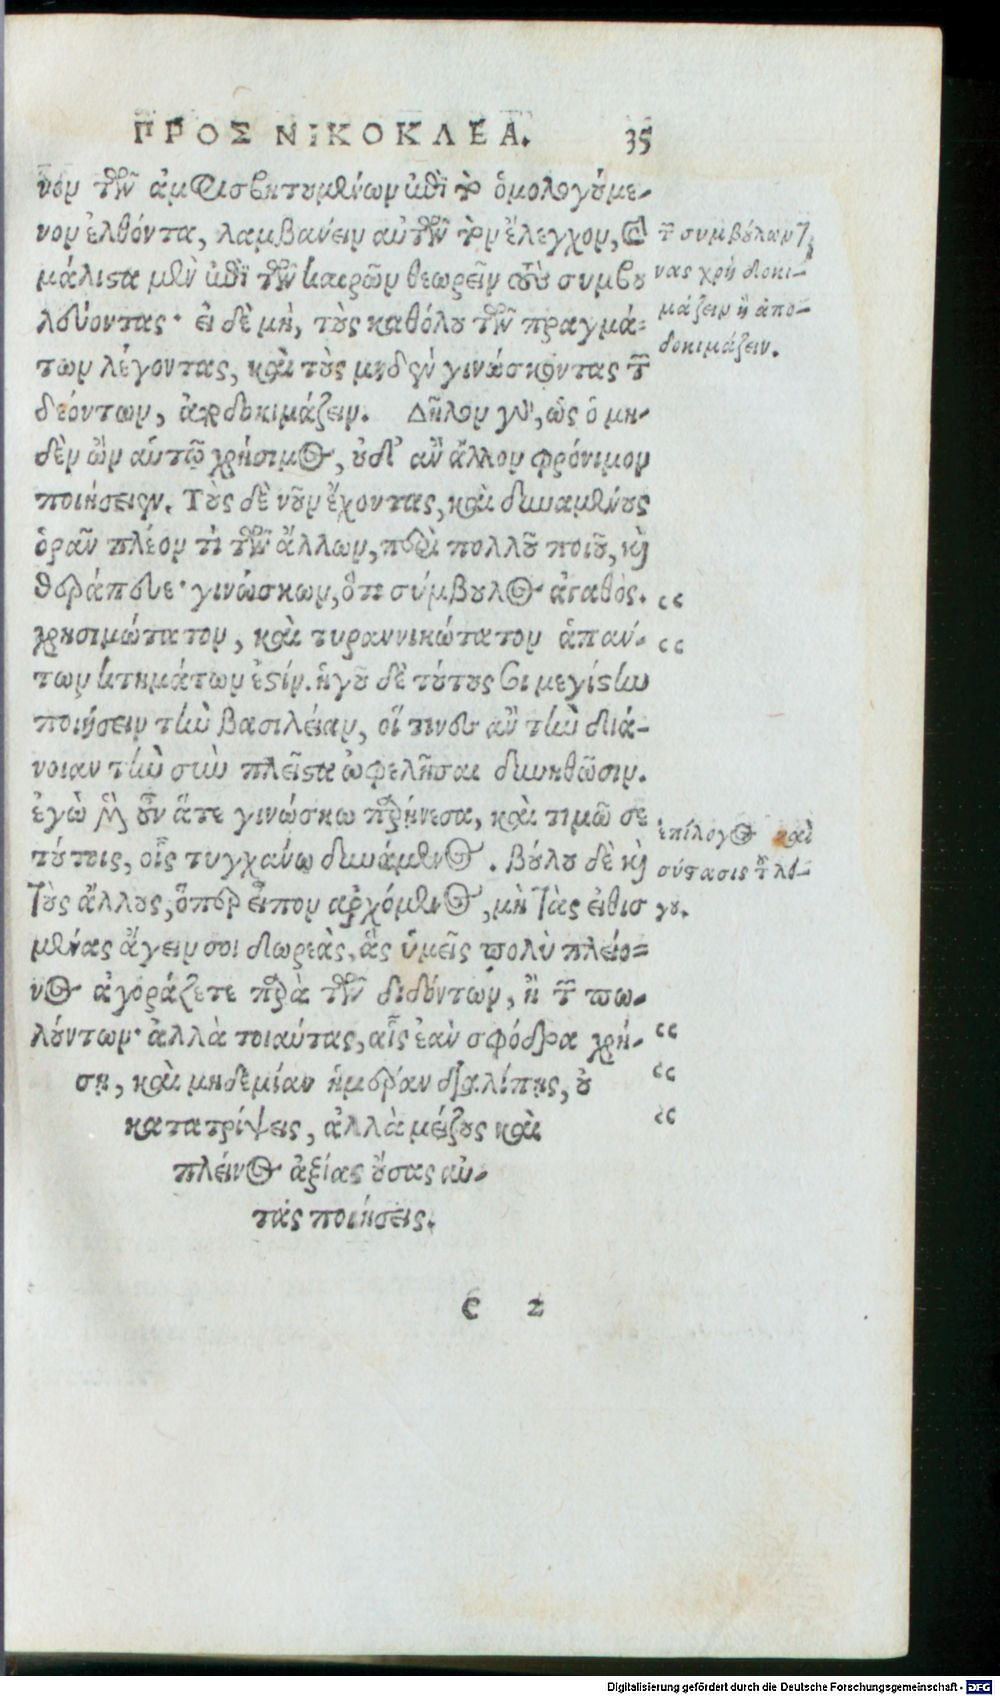 ΠΡΟΣ ΝΙΚΟΚΛΕΑ. 35
νον τῶν ἀμφισβητουμένων ἐπὶ τὸ ὁμολογούμε-
νον ἐλθόντα, λαμβάνειν αὐτῶν τὸν ἔλεγχον, καὶ
μάλιστα μὲν ἐπὶ τῶν καιρῶν θεωρεῖν τοὺς συμβου
λεύοντας· εἰ δὲ μὴ, τοὺς καθόλου τῶν πραγμά-
των λέγοντας, καὶ τοὺς μηδὲν γινώσκοντας τῶν
δεόντων, ἀποδοκιμάζειν. Δῆλον γὰρ, ὡς ὁ μη-
δὲν ὢν αὑτῷ χρήσιμος, οὐδ' ἂν ἄλλον φρόνιμον
ποιήσειεν. Τοὺς δὲ νοῦν ἔχοντας, καὶ δυναμένους
ὁρᾶν πλέον τι τῶν ἄλλων, περὶ πολλοῦ ποιοῦ, καὶ
θεράπευε· γινώσκων, ὅτι σύμβουλος ἀγαθὸς. “
χρησιμώτατον, καὶ τυραννικώτατον ἁπάν- “
των κτημάτων ἐστίν. ἡγοῦ δὲ τούτους σοι μεγίστην
ποιήσειν τὴν βασιλείαν, οἵ τινες ἂν τὴν διά-
νοιαν τὴν σὴν πλεῖστα ὠφελῆσαι δυνηθῶσιν.
ἐγὼ μὲν οὖν ἅτε γινώσκω παρῄνεσα, καὶ τιμῶ σε
τούτοις, οἷς τυγχάνω δυνάμενος. βούλου δὲ καὶ
τοὺς ἄλλους, ὅπερ εἶπον ἀρχόμενος, μὴ τὰς εἰθισ
μένας ἄγειν σοι δωρεὰς, ἃς ὑμεῖς πολὺ πλείο-
νος ἀγοράζετε παρὰ τῶν διδόντων, ἢ τῶν πω-
λούντων· ἀλλὰ τοιαύτας, αἷς ἐὰν σφόδρα χρή- “
ση, καὶ μηδεμίαν ἡμέραν διαλίπης, οὐ “
κατατρίψεις, ἀλλὰ μείζους καὶ “
πλείνος ἀξίας οὔσας αὐ-
τάς ποιήσεις.
c 2
τῶν συμβούλων τί
νας χρὴ δοκι-
μάζειν ἢ ἀπο-
δοκιμάζειν.
ἐπίλογος καὶ
σύστασις τοῦ λό-
γου.
Digitalisierung gefördert durch die Deutsche Forschungsgemeinschaft - DFG